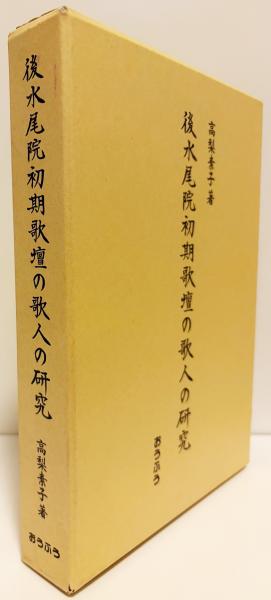 後水尾院初期歌壇の歌人の研究
高梨素子著
おうふう
高梨素子著
後水尾院初期歌壇の歌人の研究
おうふう